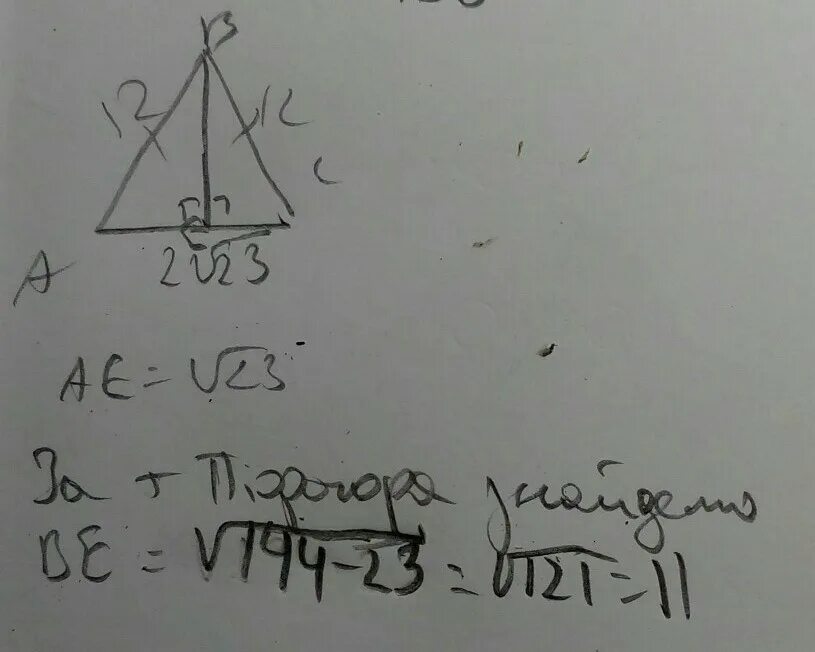 B
12 12
C
A
2√23
AE = √23
За т Піфагора знайдемо
BE = √144-23 = √121 = 11